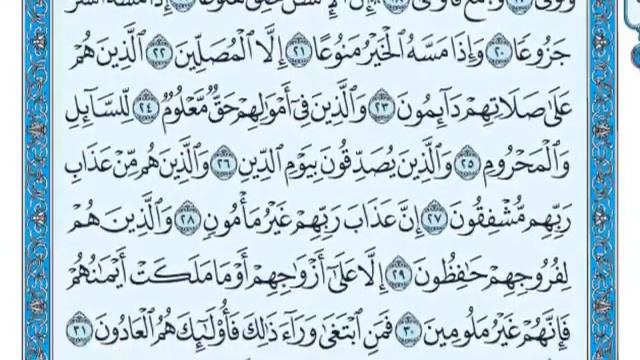 جَزُوعًا ٢٠ وَإِذَا مَسَّهُ الْخَيْرُ مَنُوعًا ٢١ إِلَّا الْمُصَلِّينَ ٢٢ الَّذِينَ هُمْ
عَلَىٰ صَلَاتِهِمْ دَآئِمُونَ ٢٣ وَالَّذِينَ فِىٓ أَمْوَالِهِمْ حَقٌّ مَّعْلُومٌ ٢٤ لِّلسَّآئِلِ
وَالْمَحْرُومِ ٢٥ وَالَّذِينَ يُصَدِّقُونَ بِيَوْمِ الدِّينِ ٢٦ وَالَّذِينَ هُم مِّنْ عَذَابِ
رَبِّهِم مُّشْفِقُونَ ٢٧ إِنَّ عَذَابَ رَبِّهِمْ غَيْرُ مَأْمُونٍ ٢٨ وَالَّذِينَ هُمْ
لِفُرُوجِهِمْ حَافِظُونَ ٢٩ إِلَّا عَلَىٰٓ أَزْوَاجِهِمْ أَوْ مَا مَلَكَتْ أَيْمَانُهُمْ
فَإِنَّهُمْ غَيْرُ مَلُومِينَ ٣٠ فَمَنِ ابْتَغَىٰ وَرَآءَ ذَٰلِكَ فَأُوْلَٰٓئِكَ هُمُ الْعَادُونَ ٣١